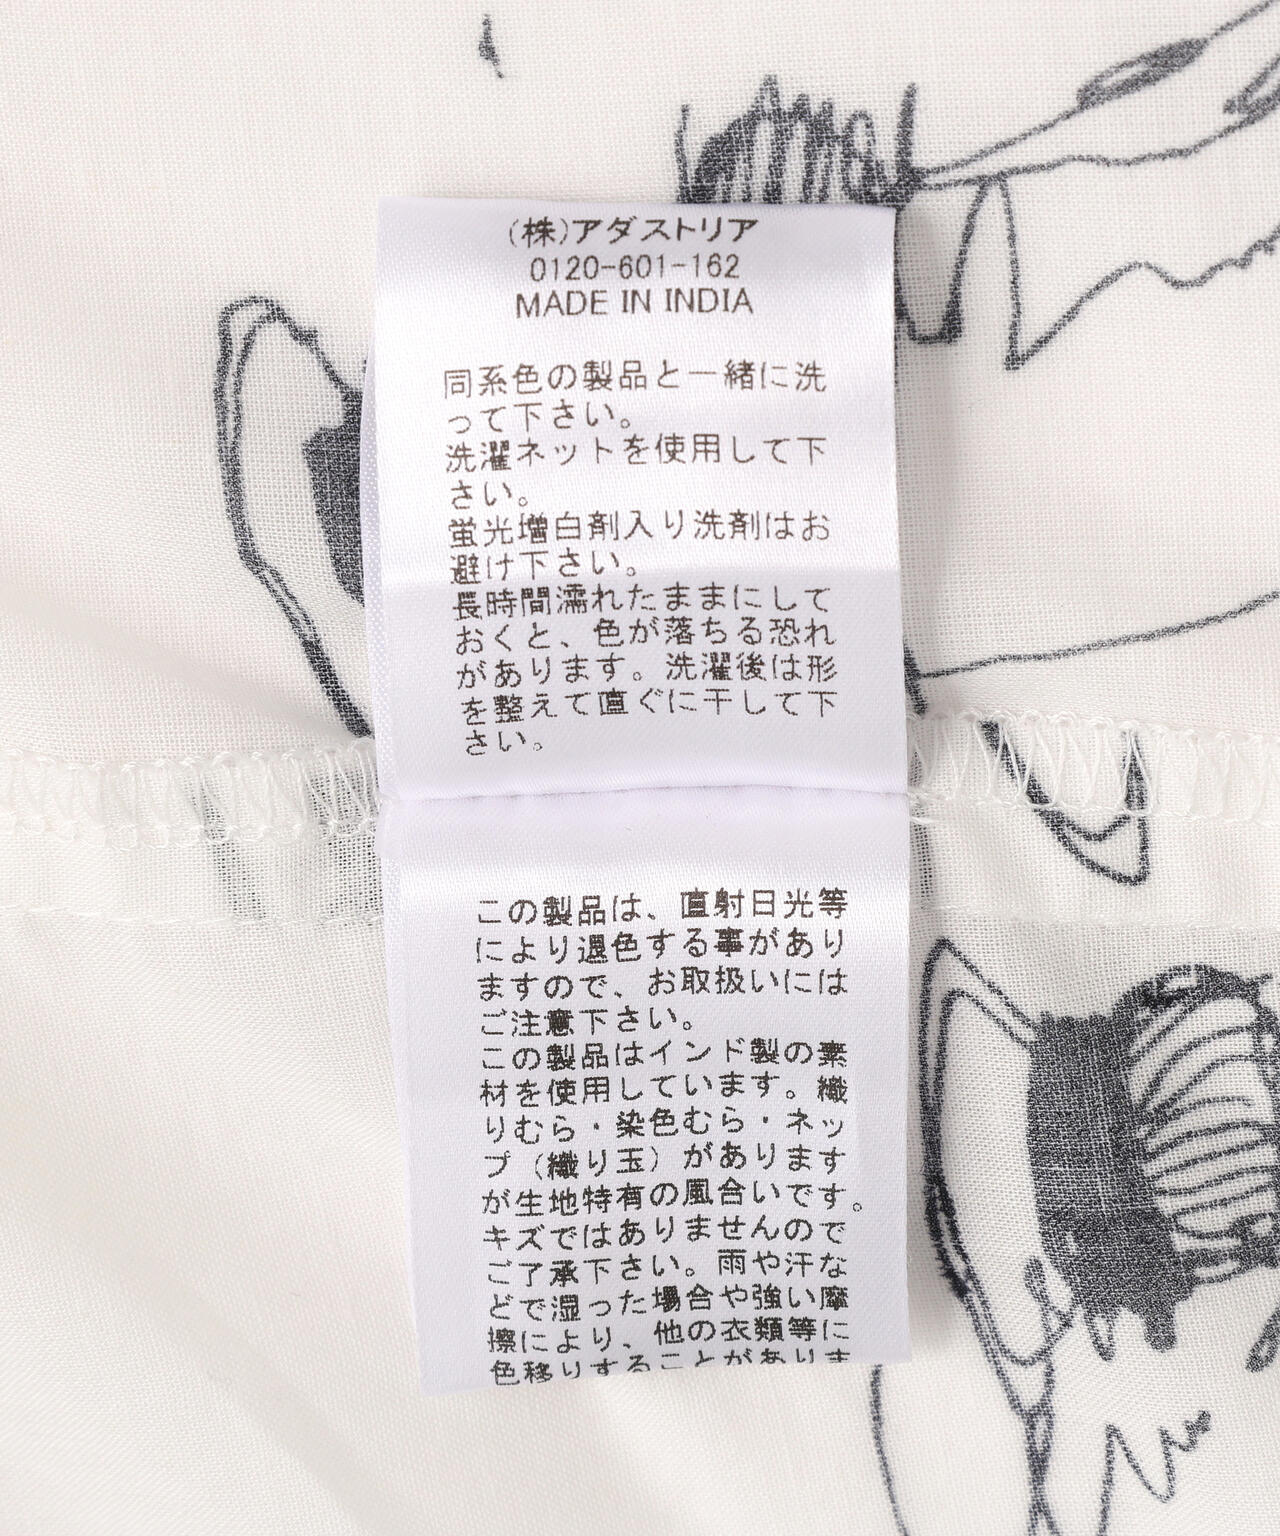 (株)アダストリア
0120-601-162
MADE IN INDIA
同系色の製品と一緒に洗
って下さい。
洗濯ネットを使用して下
さい。
蛍光増白剤入り洗剤はお
避け下さい。
長時間濡れたままにして
おくと、色が落ちる恐れ
があります。洗濯後は形
を整えて直ぐに干して下
さい。
この製品は、直射日光等
により退色する事があり
ますので、お取扱いには
ご注意下さい。
この製品はインド製の素
材を使用しています。織
りむら・染色むら・ネッ
プ（織り玉）があります
が生地特有の風合いです。
キズではありませんので
ご了承下さい。雨や汗な
どで湿った場合や強い摩
擦により、他の衣類等に
色移りすることがありま